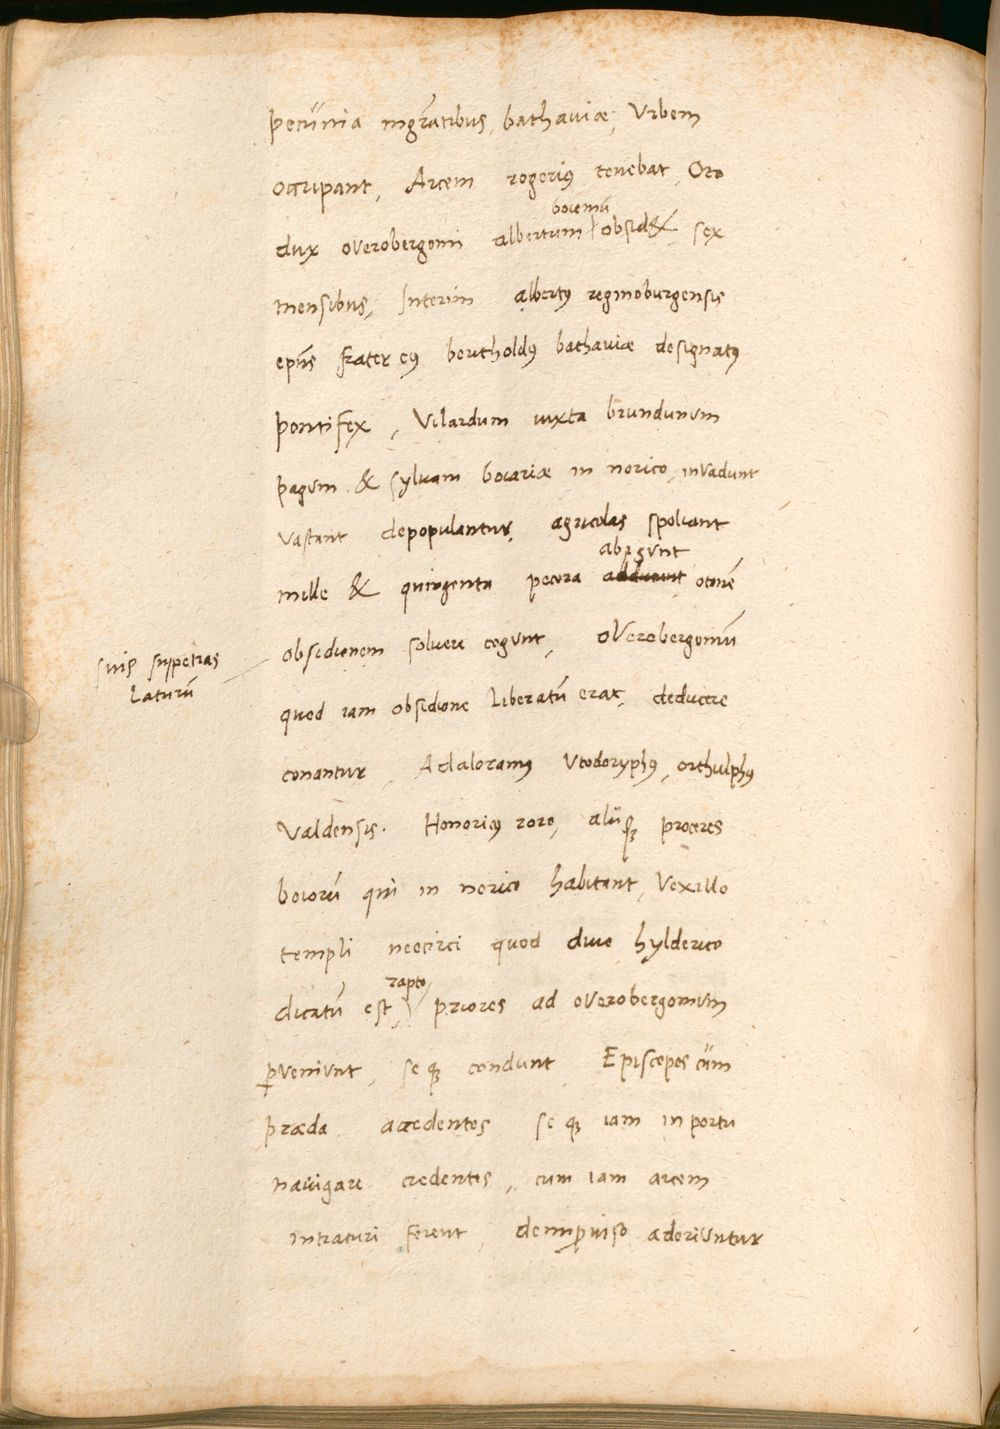 pecunia ingratibus, bathaviæ, Urbem
occupant, Arcem rogerius tenebat, Oto
dux overobergomi albertum boiemū obsid& sex
mensibus, Interim albertus reginoburgensis
epūs frater eius bertholdus bathaviæ designatus
pontifex, Vilardum iuxta brundunum
pagum & sylvam boiariæ in norico, invadunt
vastant depopulantur, agricolas spoliant
mille & quingenta pecora abigunt otonē
obsidionem soluere cogunt, overobergomū
suis suppetias
laturū
quod iam obsidione Liberatū erat, deducere
conantur, Adaloramus Utodoryphus, orthulphus
Valdensis. Honorius roro, alii q; proceres
boiorū qui in norico habitant, Vexillo
templi neocirci quod divo hylderico
dicatū est, rapto priores ad overobergomum
perveniunt, se q; condunt, Episcopos cūm
præda accedentes se q; iam in portu
navigare credentes, cum iam arcem
intraturi forent, deimproviso adoriuntur